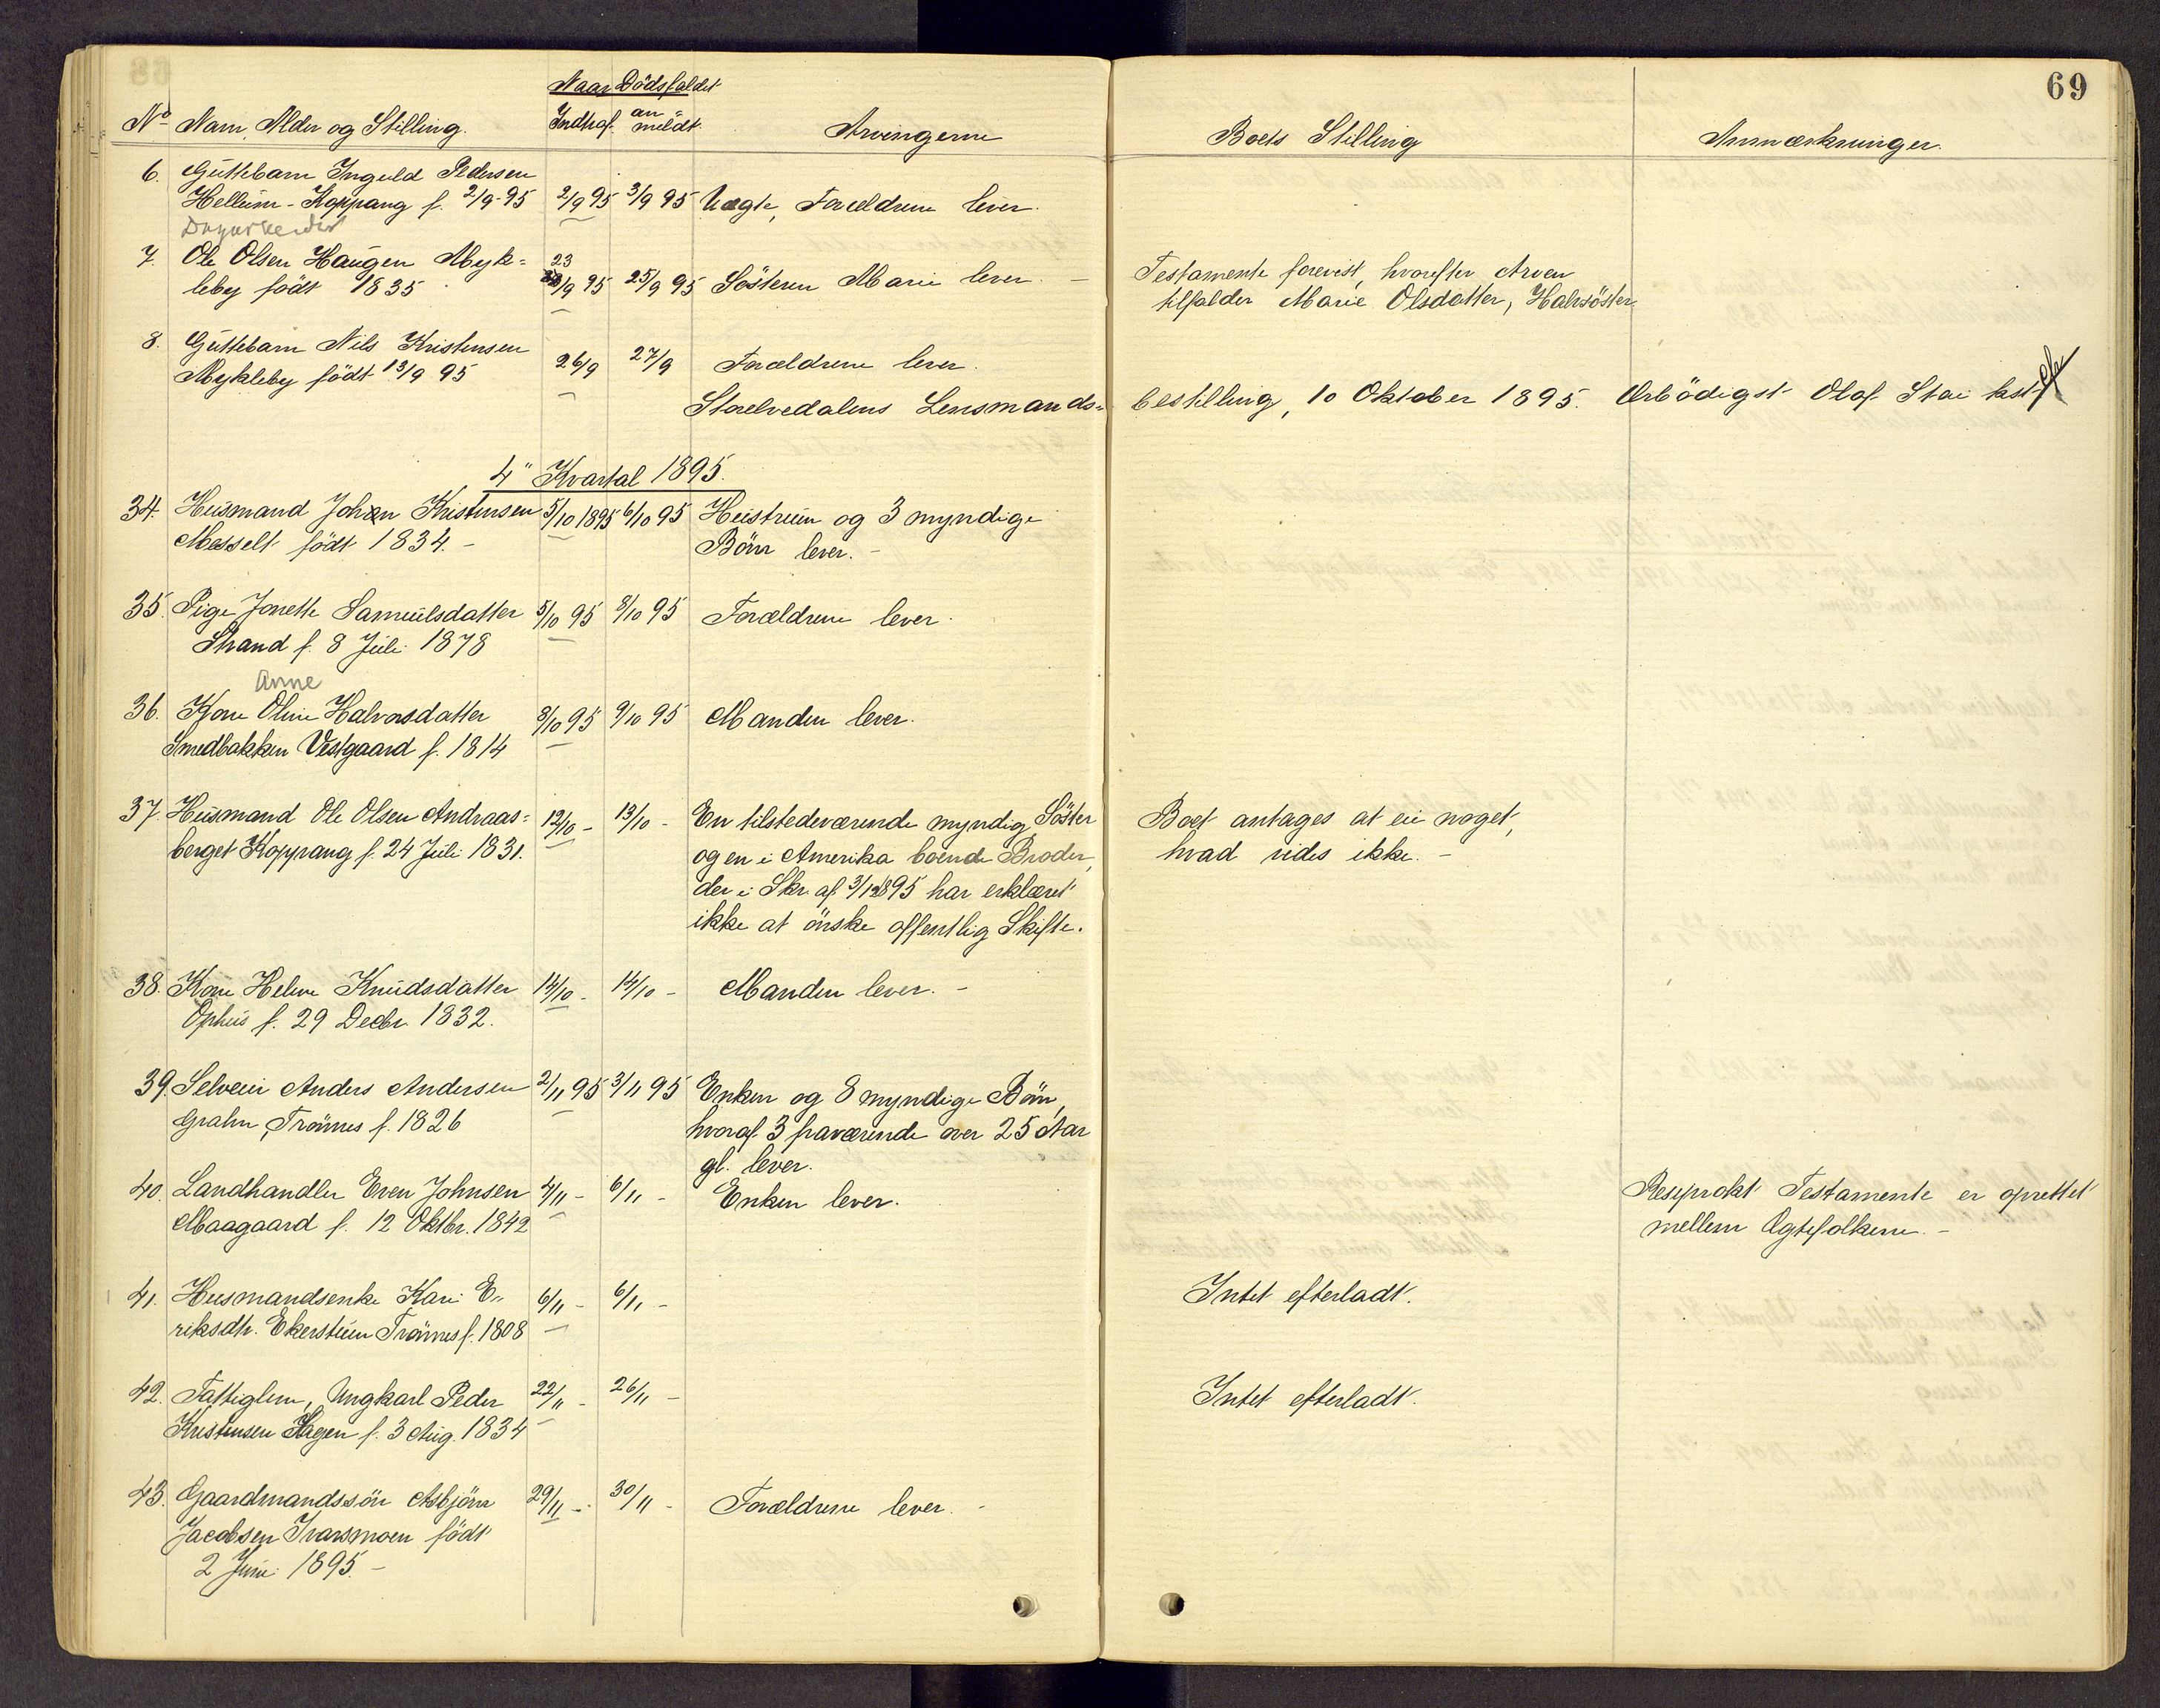 69
Naar Dödsfaldet
No Navn, Alder og Stilling. Indtraf. an-meldt. Arvingerne Boets Stilling Anmærkninger.
6. Guttebarn Inguld Pedersen
Hellum - Koppang f. 2/9-95 2/9 95 3/9 95 Uægte, Forældrene lever.
Dagarbeider
7. Ole Olsen Haugen Myk= 23 Testamente forevist, hvorefter Arven
leby födt 1835 /9 95 25/9 95 Sösteren Marie lever. - tilfalder Marie Olsdatter, Halvsöster
8. Guttebarn Nils Kristensen
Mykleby födt 13/9 95 26/9 27/9 Forældrene lever.
Storelvedalens Lensmands= bestilling, 10 Oktober 1895. Ærbödigst Olaf Stai kst
4" Kvartal 1895.
34. Husmand Johan Kristensen 5/10 1895 6/10 95 Hustruen og 3 myndige
Messelt födt 1834. - Börn lever. -
35. Pige Jonette Samuelsdatter 5/10 95 8/10 95 Forældrene lever.
Strand f. 8 Juli 1878
Anne
36. Kone Oline Halvorsdatter 8/10 95 9/10 95 Manden lever.
Smedbakken Vestgaard f. 1814
37. Husmand Ole Olsen Andraas= 12/10 - 13/10 - En tilstedeværende myndig Söster Boet antages at eie noget,
berget Koppang f. 24 Juli 1831. og en i Amerika boende Broder, hvad vides ikke. -
der i Skr. af 3/12 1895 har erklæret
ikke at önske offentlig Skifte.
38. Kone Helene Knudsdatter 14/10 - 14/10 - Manden lever. -
Ophus f. 29 Decbr. 1832.
39. Selveier Anders Andersen 2/11 95 3/11 95 Enken og 8 myndige Börn,
Grahn, Trönnes f. 1826 hvoraf 3 fraværende over 25 Aar
gl. lever.
40. Landhandler Even Johnsen 4/11 - 6/11 - Enken lever. Resiprokt Testamente er oprettet
Maagaard f. 12 Oktbr. 1842 mellem Ægtefolkene. -
41. Husmandsenke Kari E= 6/11 - 6/11 - Intet efterladt.
riksdtr. Ekerstuen Trönnes f. 1808
42. Fattiglem, Ungkarl Peder 22/11 - 26/11 - Intet efterladt.
Kristensen Hagen f. 3 Aug. 1834
43. Gaardmandssön Asbjörn 29/11 - 30/11 - Forældrene lever. -
Jacobsen Ivarsmoen födt
2 Juni 1895. -